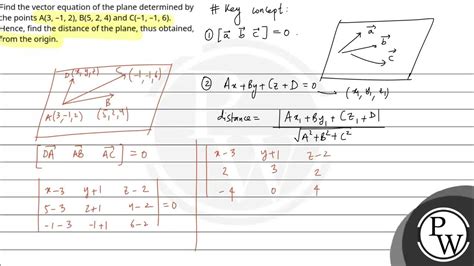 Find the vector equation of the plane determined by
the points A(3, −1, 2), B(5, 2, 4) and C(−1, −1, 6).
Hence, find the distance of the plane, thus obtained,
from the origin.
# Key concept:
① [a⃗ b⃗ c⃗] = 0.
a⃗
b⃗
c⃗
② Ax + By + Cz + D = 0
(x₁, y₁, z₁)
distance = |Ax₁ + By₁ + Cz₁ + D| / √(A² + B² + C²)
D(x, y, z)
C (-1, -1, 6)
A(3, -1, 2)
B
(5, 2, 4)
[D⃗A A⃗B A⃗C] = 0
| x-3 y+1 z-2 |
| 5-3 2+1 4-2 | = 0
| -1-3 -1+1 6-2 |
| x-3 y+1 z-2 |
| 2 3 2 |
| -4 0 4 |
P
W